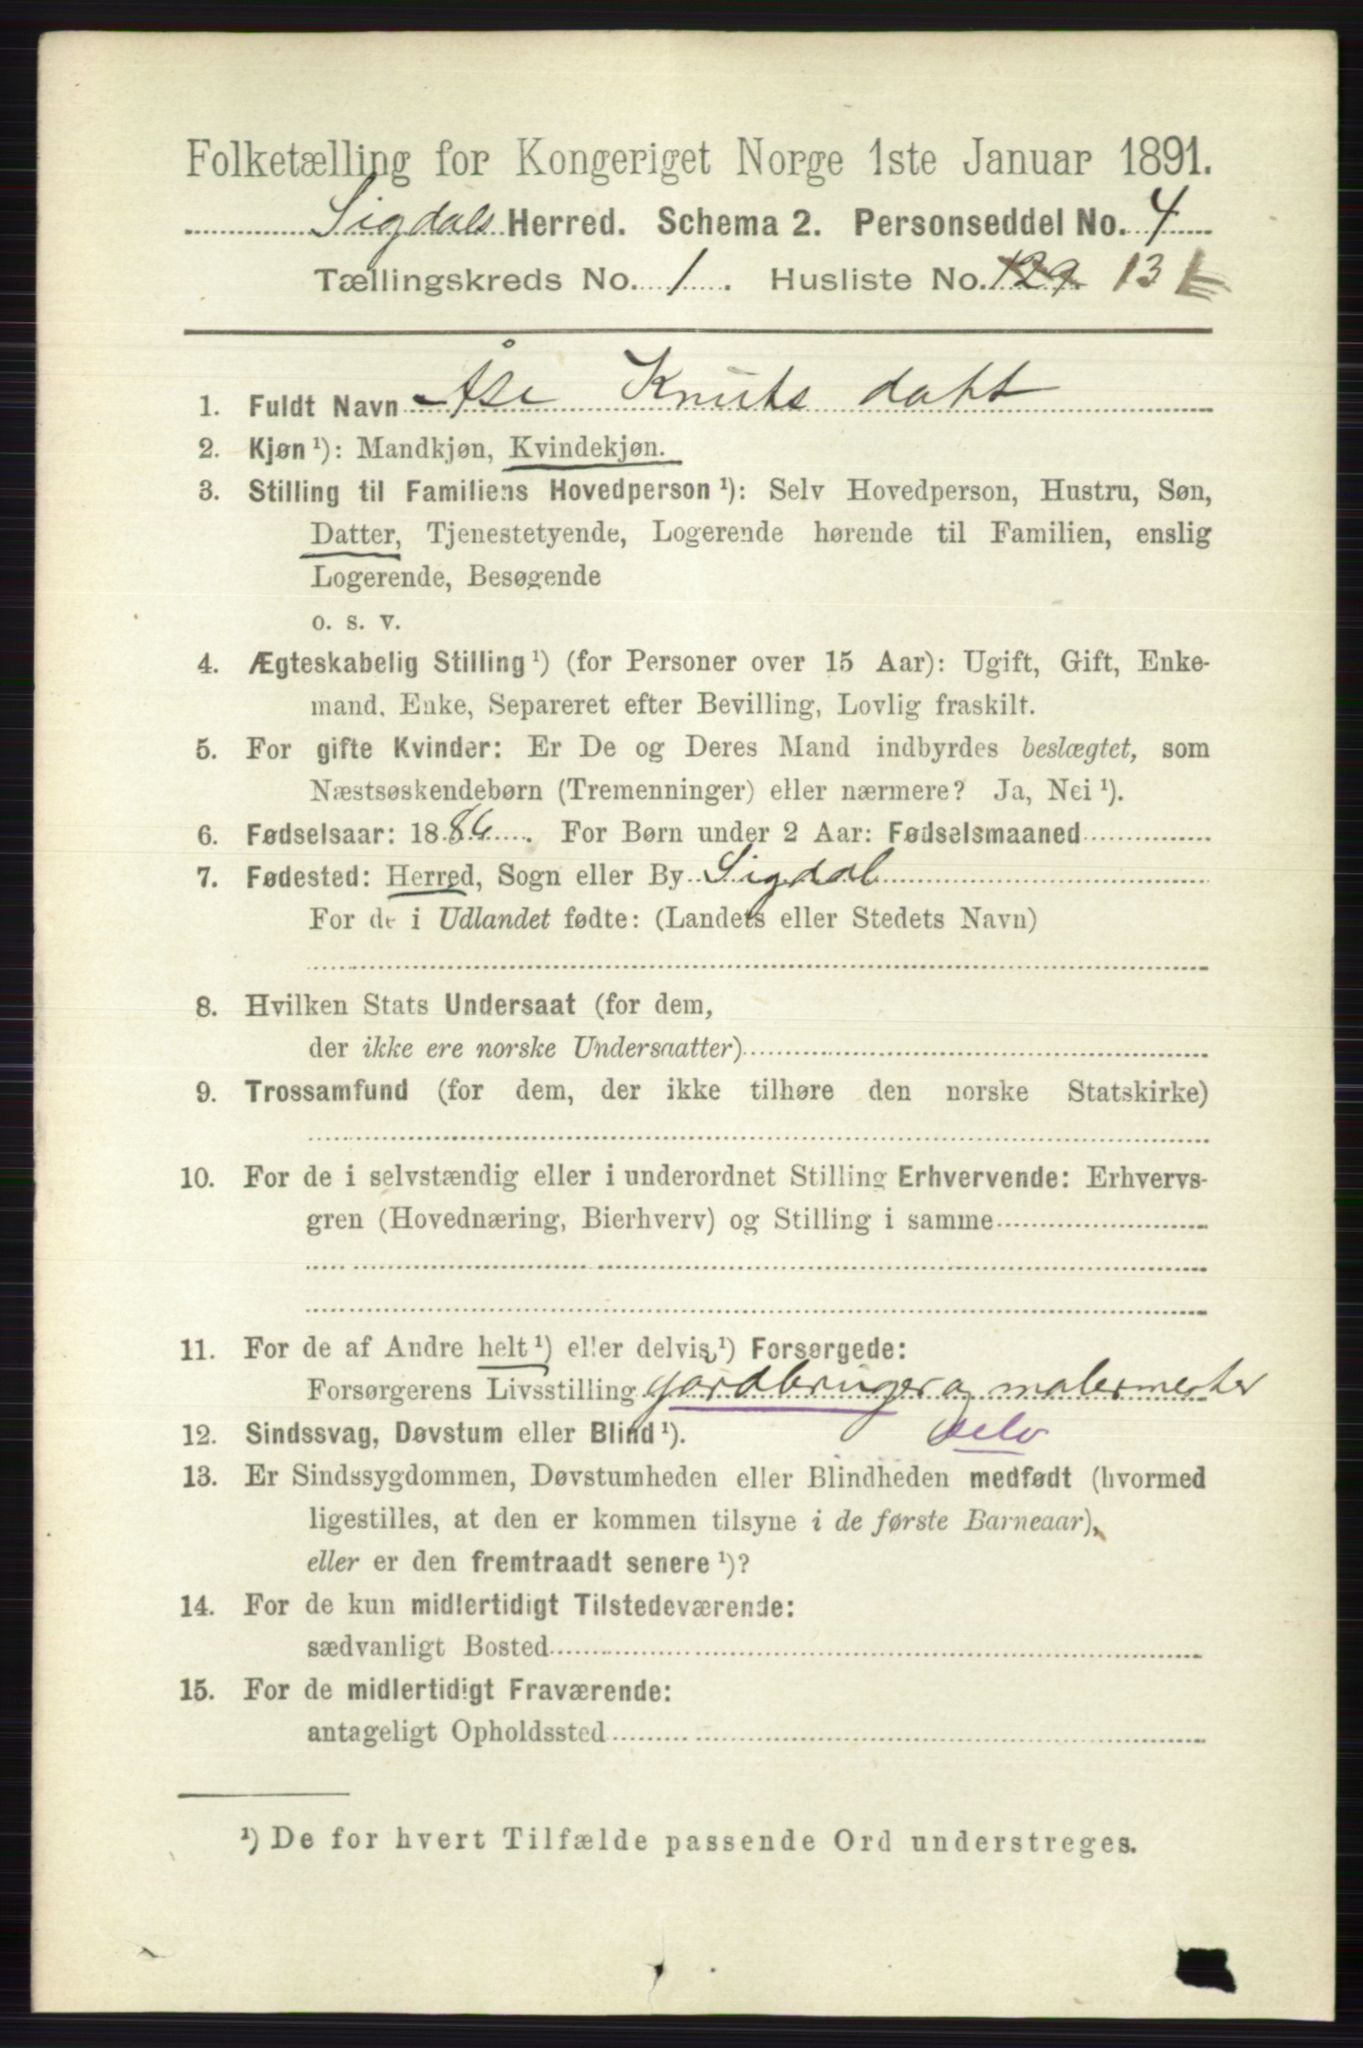 Folketælling for Kongeriget Norge 1ste Januar 1891.
Sigdals Herred. Schema 2. Personseddel No. 4
Tællingskreds No. 1. Husliste No. 129 131
1. Fuldt Navn Åse Knuts datt
2. Kjøn ¹): Mandkjøn, Kvindekjøn.
3. Stilling til Familiens Hovedperson ¹): Selv Hovedperson, Hustru, Søn,
Datter, Tjenestetyende, Logerende hørende til Familien, enslig
Logerende, Besøgende
o. s. v.
4. Ægteskabelig Stilling ¹) (for Personer over 15 Aar): Ugift, Gift, Enke-
mand, Enke, Separeret efter Bevilling, Lovlig fraskilt.
5. For gifte Kvinder: Er De og Deres Mand indbyrdes beslægtet, som
Næstsøskendebørn (Tremenninger) eller nærmere? Ja, Nei ¹).
6. Fødselsaar: 1886. For Børn under 2 Aar: Fødselsmaaned
7. Fødested: Herred, Sogn eller By Sigdal
For de i Udlandet fødte: (Landets eller Stedets Navn)
8. Hvilken Stats Undersaat (for dem,
der ikke ere norske Undersaatter)
9. Trossamfund (for dem, der ikke tilhøre den norske Statskirke)
10. For de i selvstændig eller i underordnet Stilling Erhvervende: Erhvervs-
gren (Hovednæring, Bierhverv) og Stilling i samme
11. For de af Andre helt ¹) eller delvis ¹) Forsørgede:
Forsørgerens Livsstilling gardbruger og malermester
selv
12. Sindssvag, Døvstum eller Blind ¹).
13. Er Sindssygdommen, Døvstumheden eller Blindheden medfødt (hvormed
ligestilles, at den er kommen tilsyne i de første Barneaar),
eller er den fremtraadt senere ¹)?
14. For de kun midlertidigt Tilstedeværende:
sædvanligt Bosted
15. For de midlertidigt Fraværende:
antageligt Opholdssted
¹) De for hvert Tilfælde passende Ord understreges.